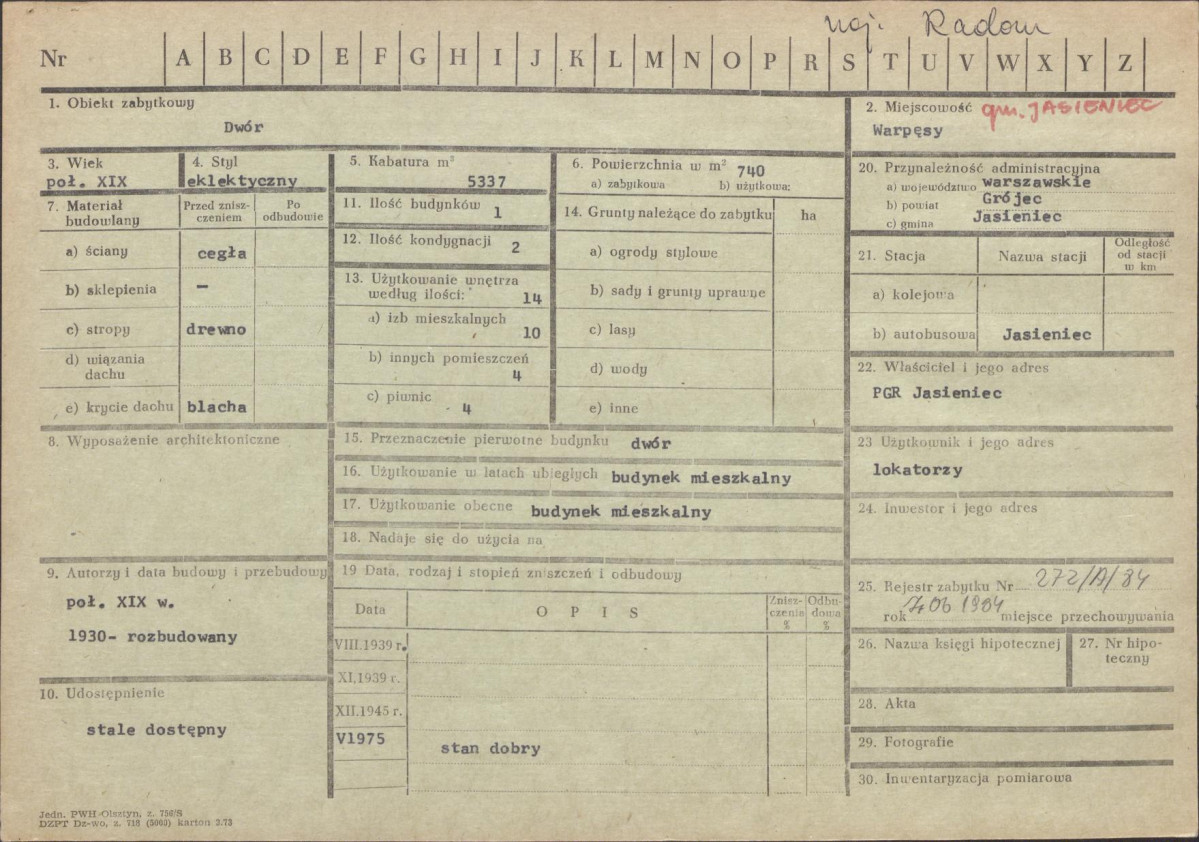 woj. Radom
Nr A B C D E F G H I J K L M N O P R S T U V W X Y Z
1. Obiekt zabytkowy
Dwór
2. Miejscowość gm. JASIENIEC
Warpęsy
3. Wiek
poł. XIX
4. Styl
eklektyczny
5. Kabatura m³
5337
6. Powierzchnia w m² 740
a) zabytkowa b) użytkowa:
20. Przynależność administracyjna
a) województwo warszawskie
b) powiat Grójec
c) gmina Jasieniec
7. Materiał
budowlany
Przed znisz-
czeniem
Po
odbudowie
a) ściany cegła
b) sklepienia –
c) stropy drewno
d) wiązania
dachu
e) krycie dachu blacha
11. Ilość budynków 1
12. Ilość kondygnacji 2
13. Użytkowanie wnętrza
według ilości: 14
a) izb mieszkalnych
10
b) innych pomieszczeń
4
c) piwnic
4
14. Grunty należące do zabytku ha
a) ogrody stylowe
b) sady i grunty uprawne
c) lasy
d) wody
e) inne
21. Stacja Nazwa stacji
Odległość
od stacji
w km
a) kolejowa
b) autobusowa Jasieniec
22. Właściciel i jego adres
PGR Jasieniec
8. Wyposażenie architektoniczne
15. Przeznaczenie pierwotne budynku dwór
16. Użytkowanie w latach ubiegłych budynek mieszkalny
17. Użytkowanie obecne budynek mieszkalny
18. Nadaje się do użycia na
23 Użytkownik i jego adres
lokatorzy
24. Inwestor i jego adres
9. Autorzy i data budowy i przebudowy
poł. XIX w.
1930- rozbudowany
10. Udostępnienie
stale dostępny
19 Data, rodzaj i stopień zniszczeń i odbudowy
Data O P I S
Znisz-
czenia
%
Odbu-
dowa
%
VIII.1939 r.
XI.1939 r.
XII.1945 r.
V1975 stan dobry
25. Rejestr zabytku Nr 272/A/84
rok 7.06 1984 miejsce przechowywania
26. Nazwa księgi hipotecznej
27. Nr hipo-
teczny
28. Akta
29. Fotografie
30. Inwentaryzacja pomiarowa
Jedn. PWH Olsztyn, z. 756/S
DZPT Dz-wo, z. 718 (5000) karton 3.73